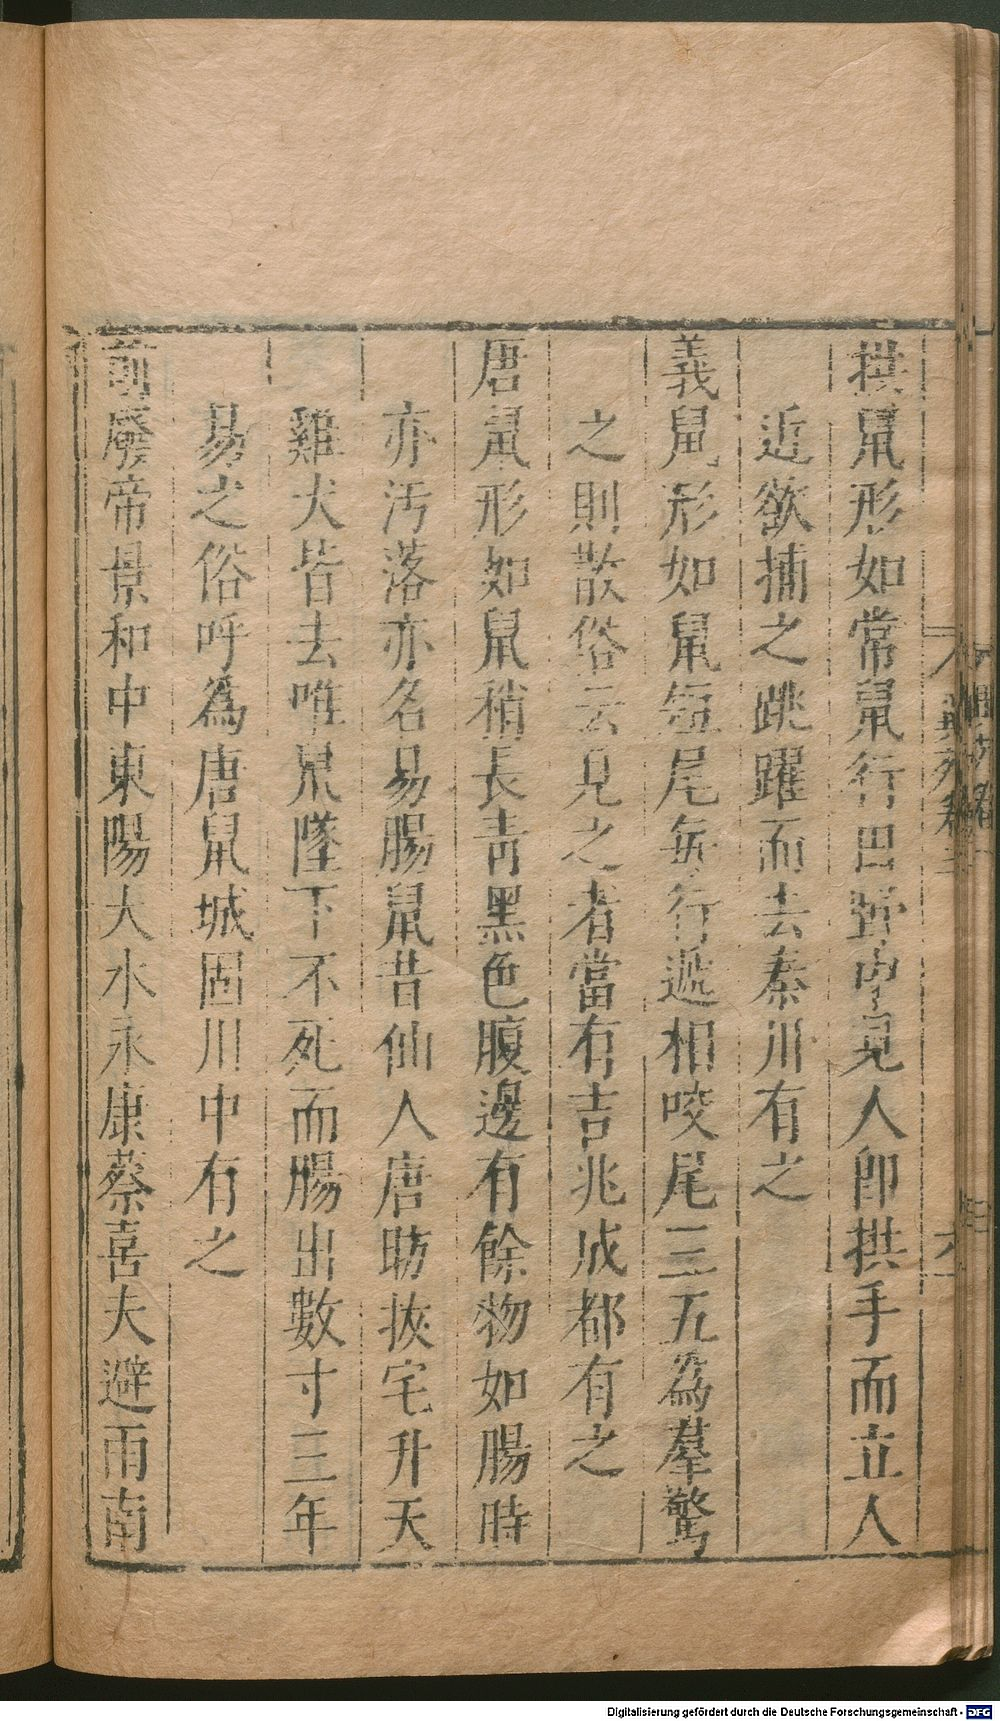 拱鼠形如常鼠行田野中見人卽拱手而立人
近欲捕之跳躍而去秦川有之
義鼠形如鼠短尾每行遞相咬尾三五為羣驚
之則散俗云見之者當有吉兆成都有之
唐鼠形如鼠稍長青黑色腹邊有餘物如腸時
亦汚落亦名易腸鼠昔仙人唐昉拔宅升天
雞犬皆去唯鼠墜下不死而腸出數寸三年
易之俗呼為唐鼠城固川中有之
前廢帝景和中東陽大水永康蔡喜夫避雨南
Digitalisierung gefördert durch die Deutsche Forschungsgemeinschaft - DFG